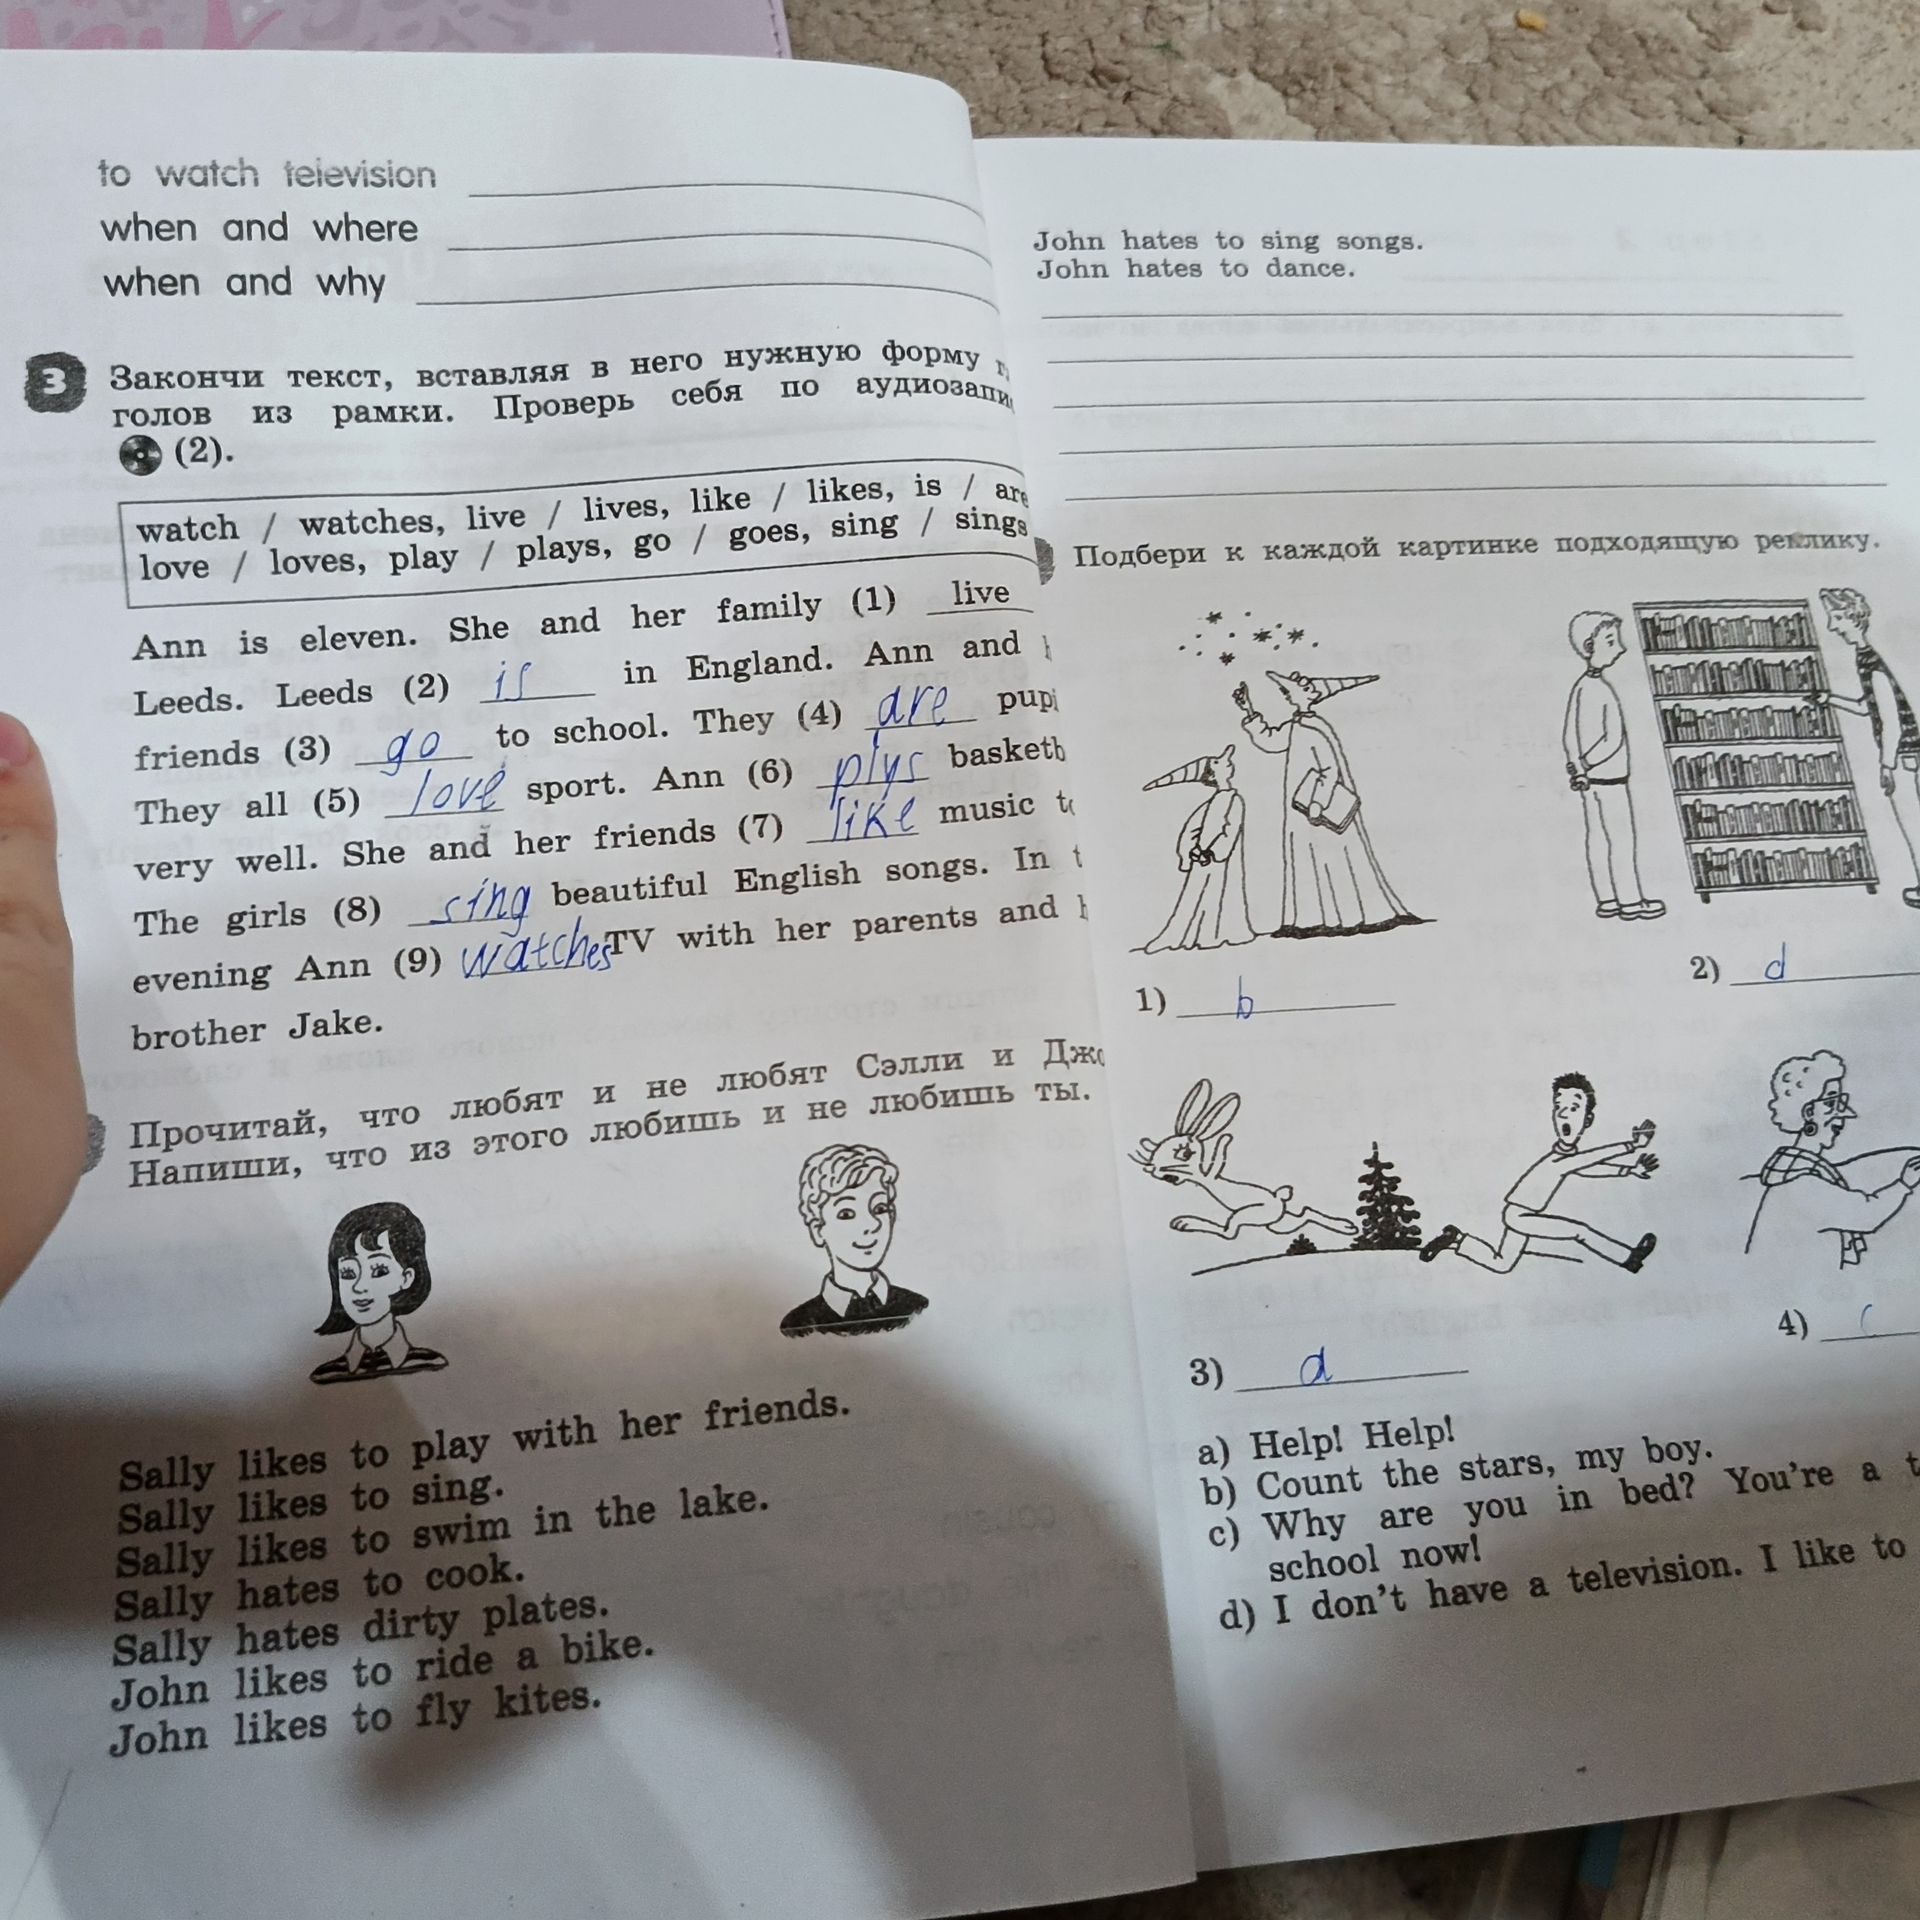 to watch television
when and where
when and why
3 Закончи текст, вставляя в него нужную форму
голов из рамки. Проверь себя по аудиозапи
(2).
watch / watches, live / lives, like / likes, is / are
love / loves, play / plays, go / goes, sing / sings
Ann is eleven. She and her family (1) live
Leeds. Leeds (2) is in England. Ann and
friends (3) go to school. They (4) are pup
They all (5) love sport. Ann (6) plys basketb
very well. She and her friends (7) like music
The girls (8) sing beautiful English songs. In t
evening Ann (9) watches TV with her parents and
brother Jake.
Прочитай, что любят и не любят Сэлли и Джо
Напиши, что из этого любишь и не любишь ты.
Sally likes to play with her friends.
Sally likes to sing.
Sally likes to swim in the lake.
Sally hates to cook.
Sally hates dirty plates.
John likes to ride a bike.
John likes to fly kites.
John hates to sing songs.
John hates to dance.
Подбери к каждой картинке подходящую реплику.
1) b
2) d
3) a
4) c
a) Help! Help!
b) Count the stars, my boy.
c) Why are you in bed? You're a t
school now!
d) I don't have a television. I like to